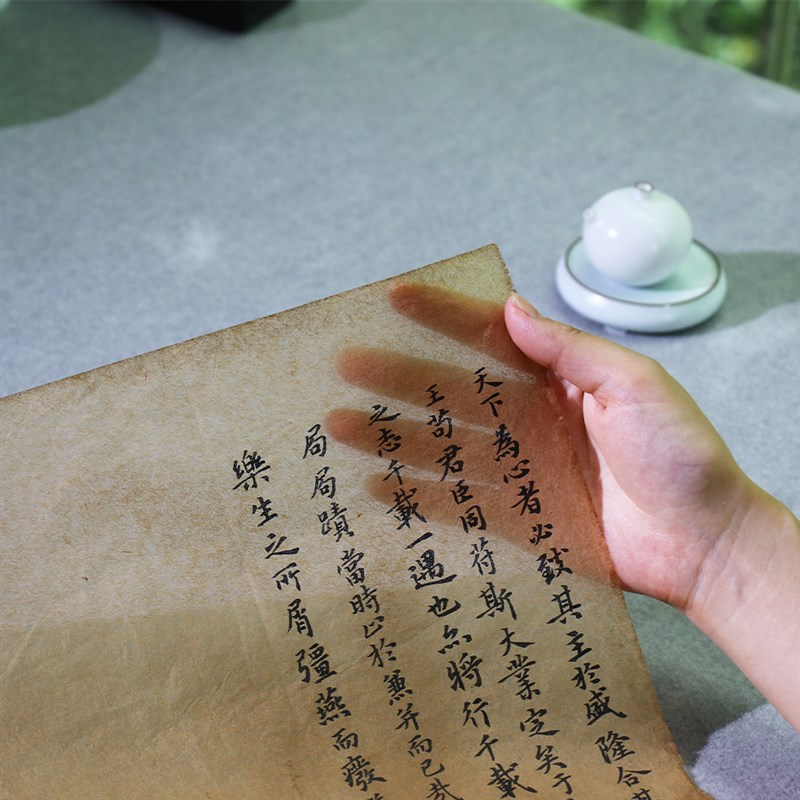 天下為心者必致其主於盛隆合
王苟君臣同符斯大業定矣于
之志千載一遇也亦將行千載
局局蹟當時止於兼并而已哉
樂生之所屑彊燕而廢